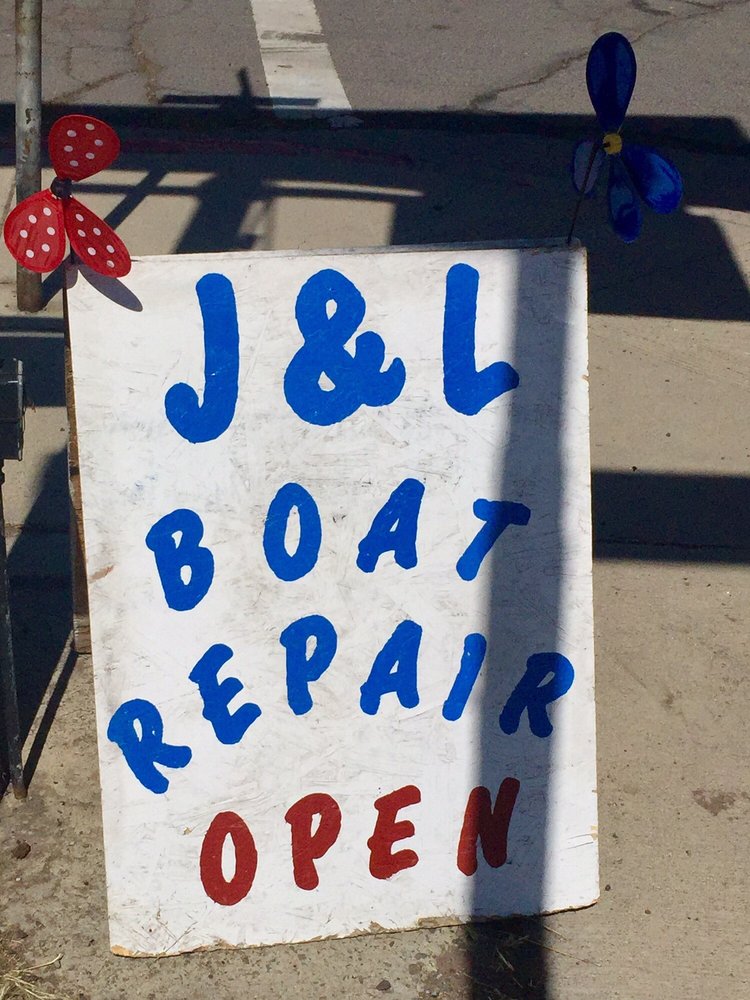 J & L
BOAT
REPAIR
OPEN